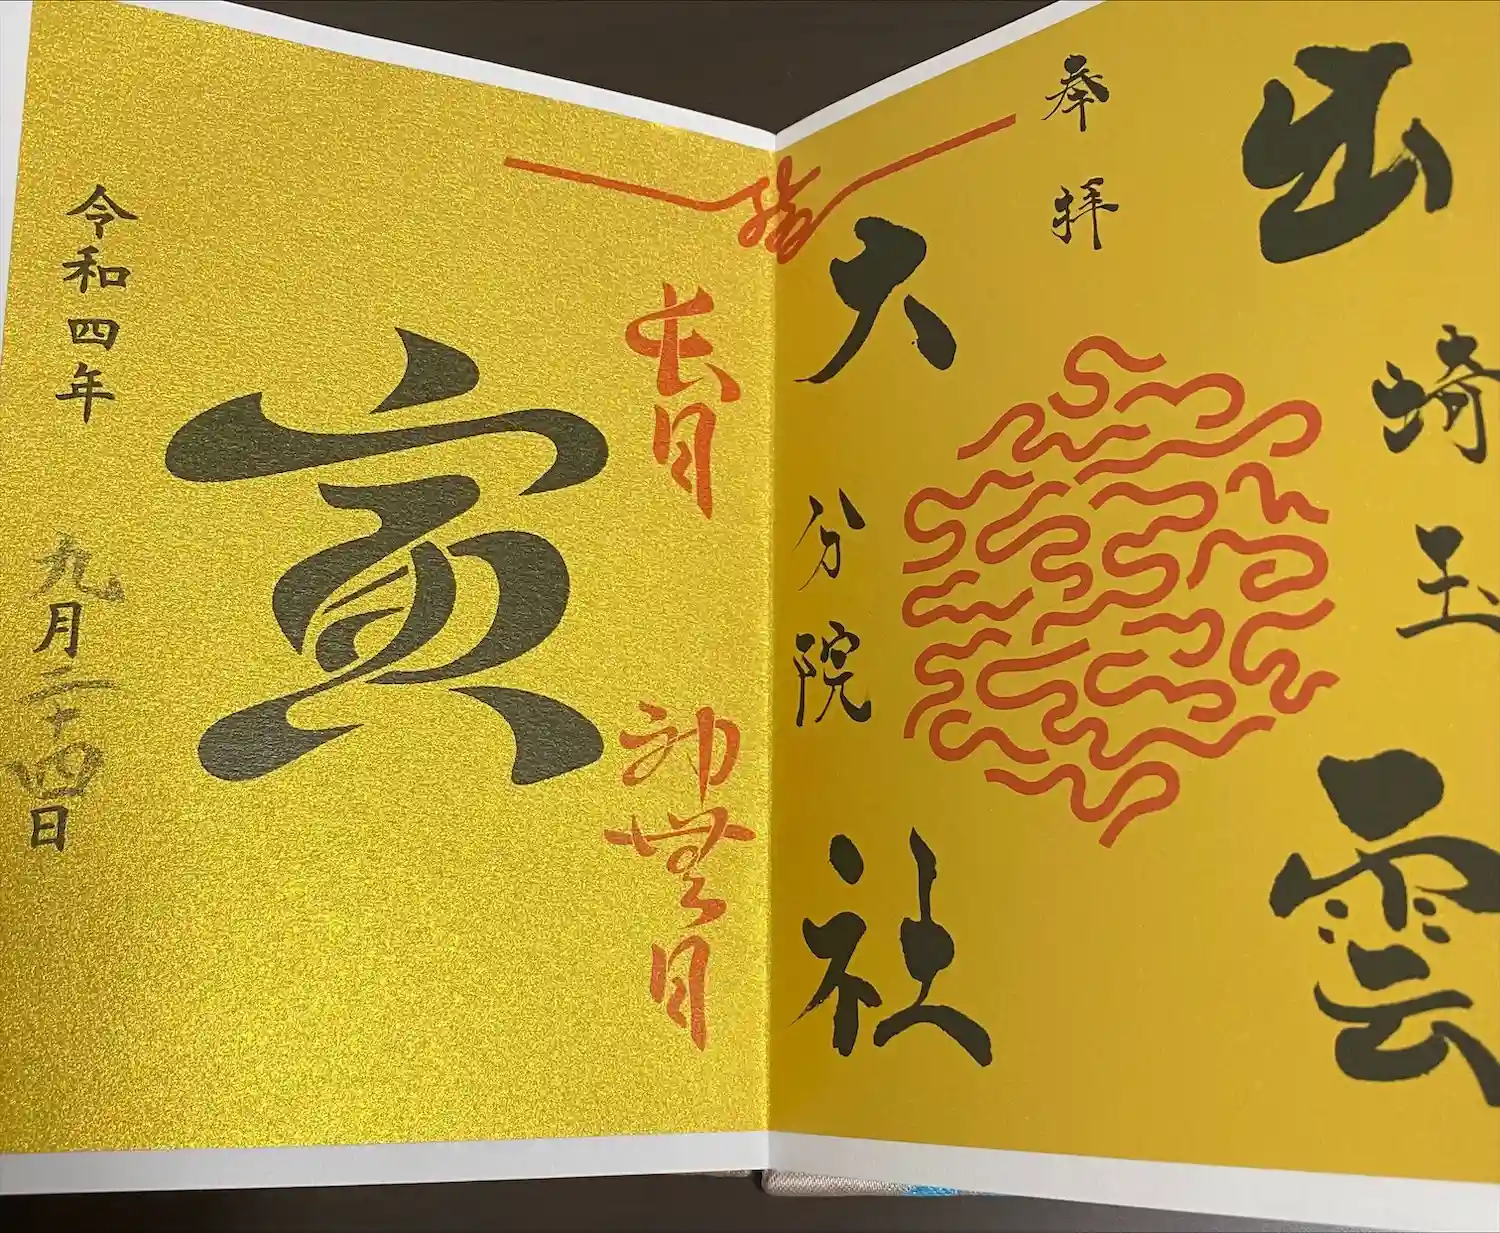 奉拝
出雲
埼玉
大社
分院
長月
神無月
寅
令和四年 九月二十四日